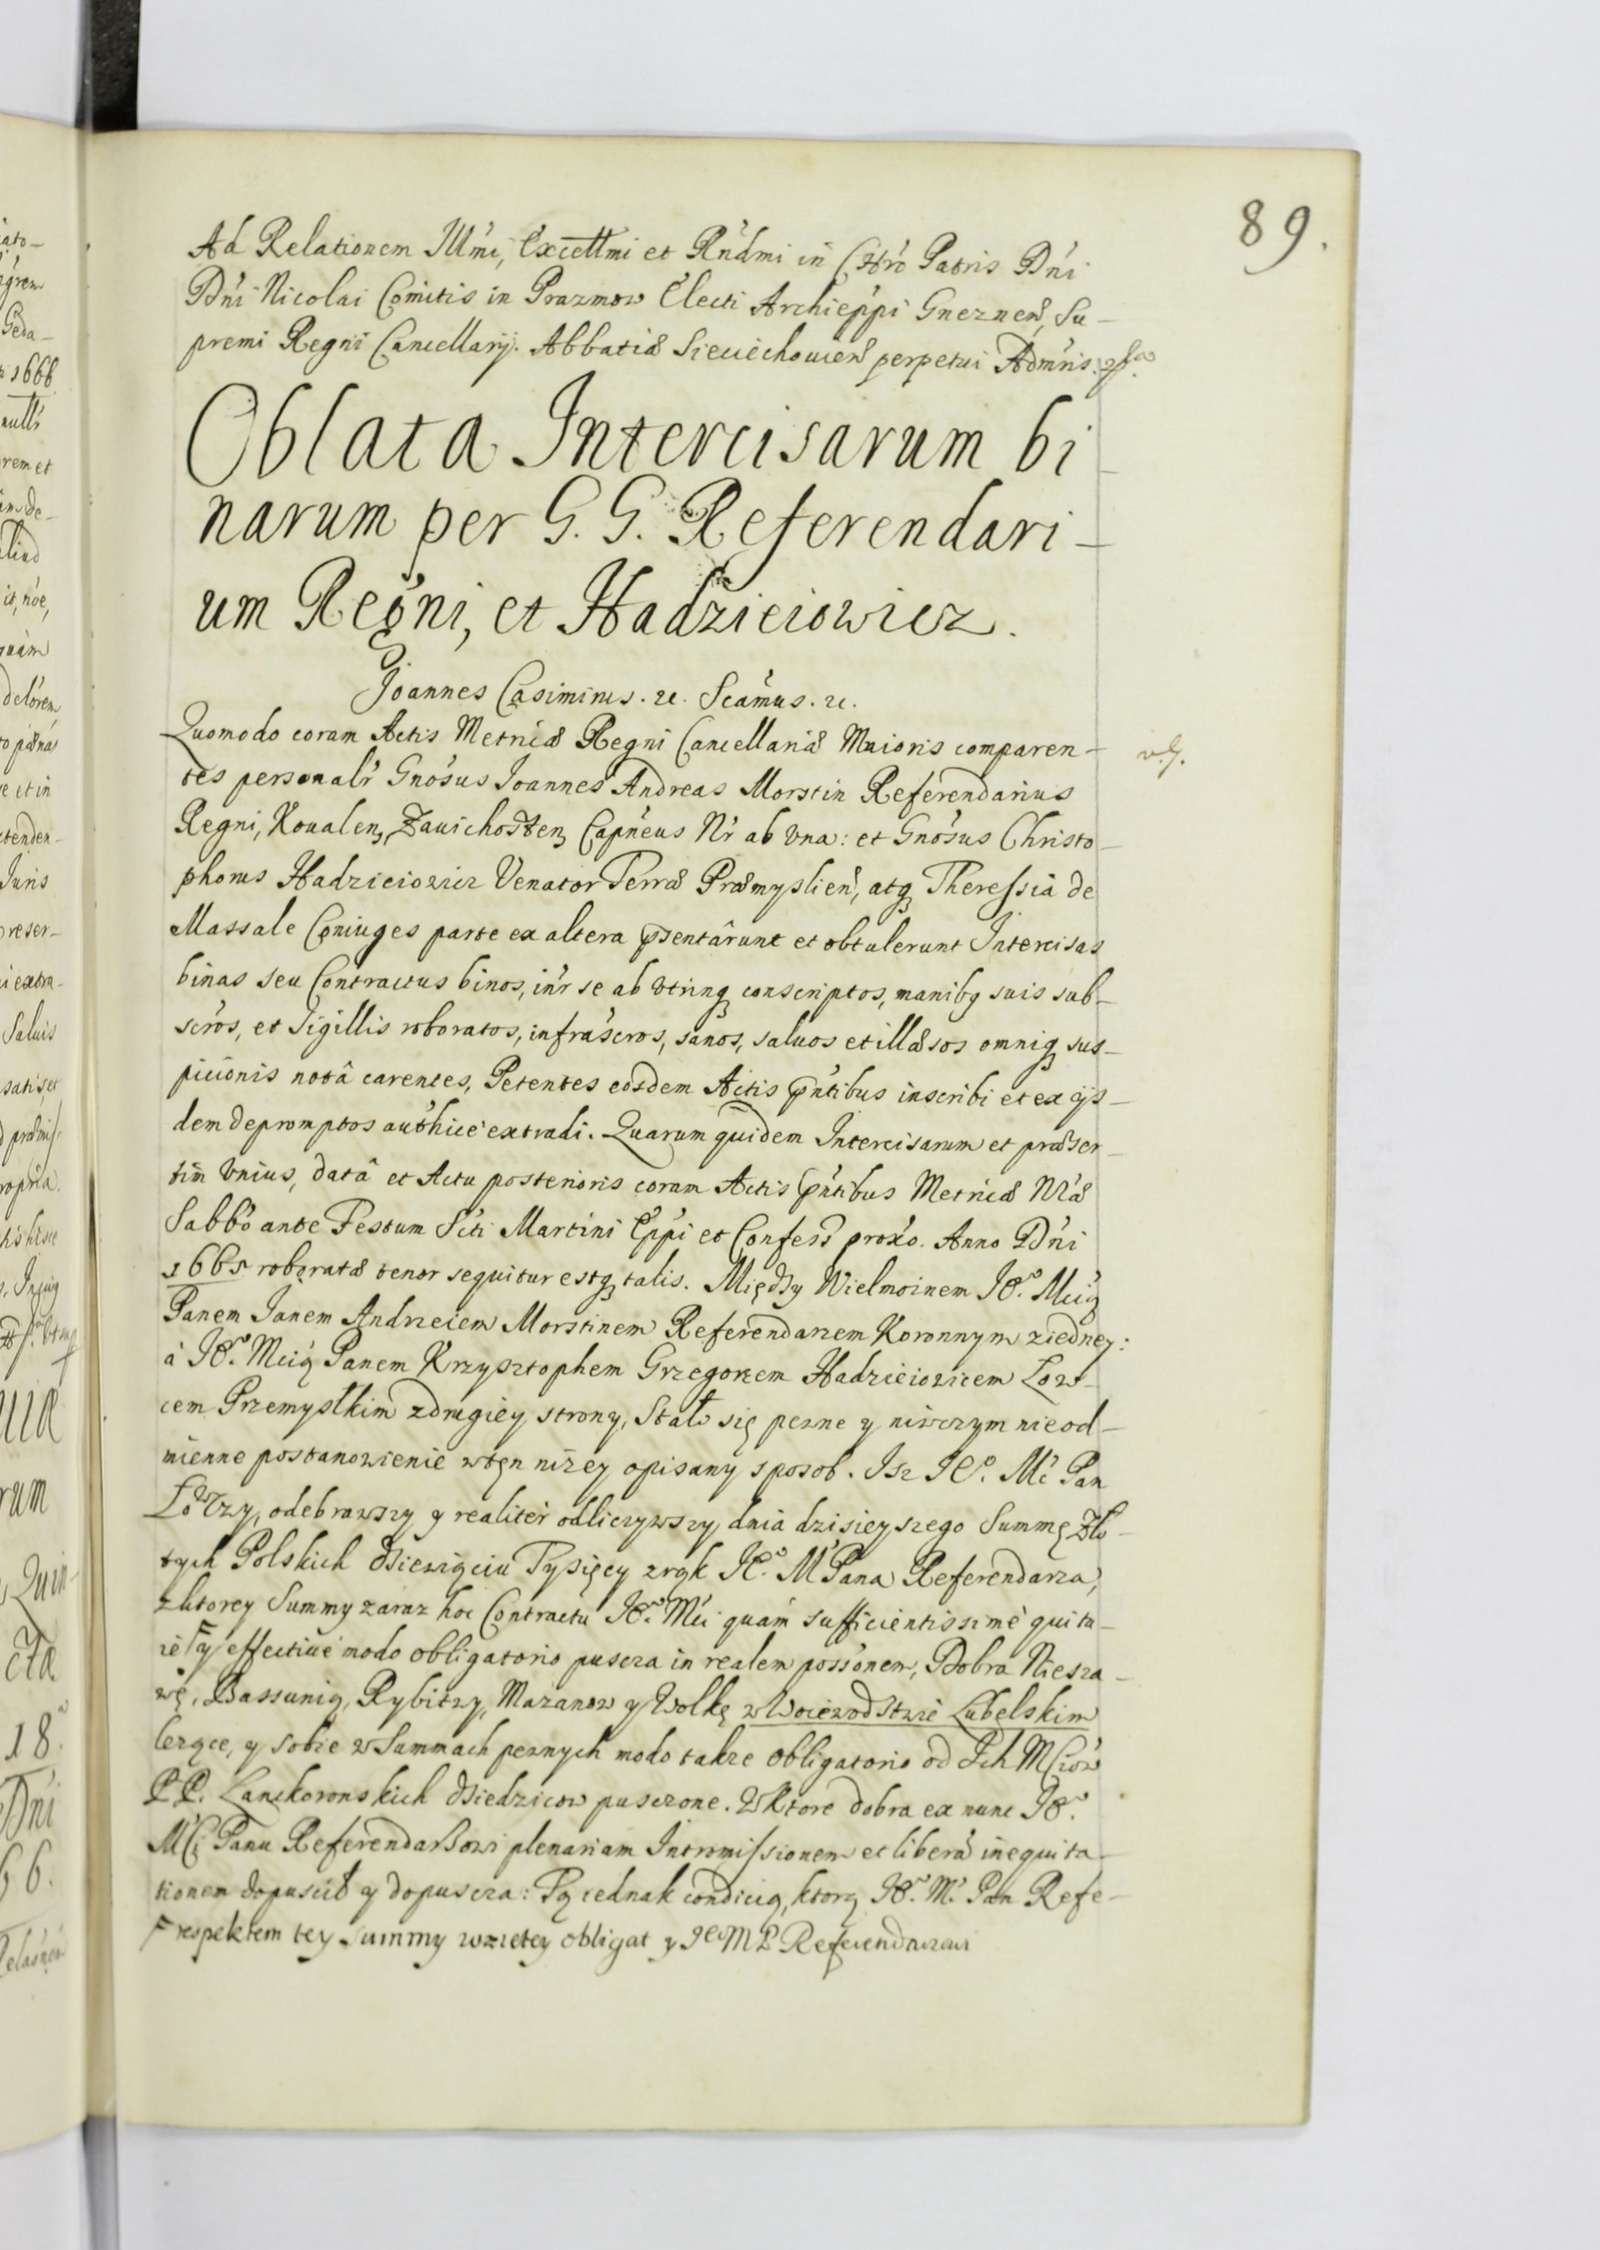 89.
Ad Relationem Illmi, Excellmi et Rndmi in Chro Patris Dni
Dni Nicolai Comitis in Prazmow Electi Archieppi Gneznen, Su-
premi Regni Cancellarij. Abbatiæ Sieciechovien perpetui Admris.
Oblata Intercisarum bi-
narum per G. G. Referendari-
um Regni, et Hadzieiowicz.
Joannes Casimirus. &c. Scamus. &c.
Quomodo coram Actis Metricæ Regni Cancellariæ Maioris comparen-
tes personalr Gnosus Joannes Andreas Morstin Referendarius
Regni, Kovalen, Zavichosten Capneus Nr ab vna: et Gnosus Christo-
phorus Hadzieiowicz Venator Terræ Præmyslien, atq Theressia de
Massale Coniuges parte ex altera pentârunt et obtulerunt Intercisas
binas seu Contractus binos, inr se ab vtrinq conscriptos, manibq suis sub-
scros, et Sigillis roboratos, infrascros, sanos, salvos et illæsos omniq sus-
picionis notâ carentes, Petentes eosdem Actis pntibus inscribi et ex ijs-
dem depromptos authice extradi. Quarum quidem Intercisarum et præser-
tim vnius, datâ et Actu posterioris coram Actis pntibus Metricæ Nræ
Sabbo ante Festum Scti Martini Eppi et Confess proxo. Anno Dni
1665 roboratæ tenor sequitur estq talis. Między Wielmoinem Je. Mcią
Panem Janem Andrzeiem Morstinem Referendarzem Koronnym ziedney:
à Je. Mcią Panem Krzysztophem Grzegorzem Hadzieiowicem Łow-
cem Przemysłkim zdrugiey strony, Stało się pewne y niwczym nieod-
mienne postanowienie wtęn niżey opisany sposob. Isz Je. Mc Pan
Łowczy, odebrawszy y realiter odliczywszy dnia dzisieyszego Summę Zło-
tych Polskich dziewięciu Tysięcy zrąk Je. M Pana Referendarza,
zktorey Summy zaraz hoc Contractu Je. Mci quam sufficientissime quitu-
ie F y effective modo obligatorio puscza in realem possonem, Dobra Niesza-
wę, Bassunią, Rybitwy, Mazanow y Wolkę w Woiewodstwie Lubelskim
leżące, y sobie w Summach pewnych modo takze obligatorio od Ich Mciow
P P. Lanckoronskich dziedzicow pusczone. W ktore dobra ex nunc Je.
Mci Panu Referendarzowi plenariam Intromissionem et liberã inequita-
tionem dopuscił y dopuscza: Tą iednak condicią, ktorą Je. M. Pan Refe-
F respektem tey summy wzietey obligat y Jeo M P Referendarzowi